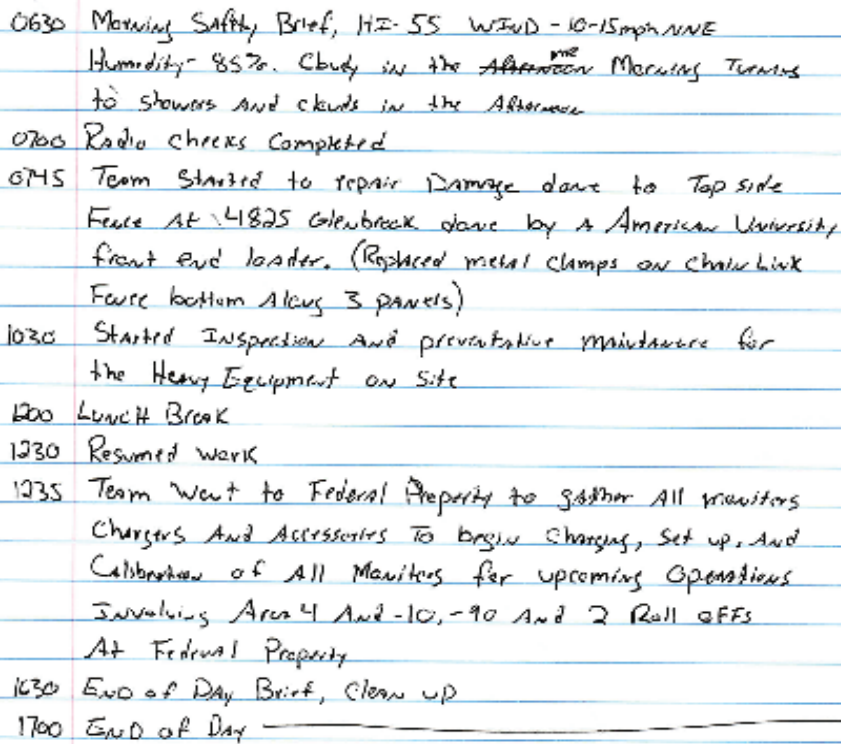 0630 Morning Safty Brief, HI-55 WIND-10-15mph NNE
Humidity-85%. Cloudy in the Afternoon Morning Turning
to showers And clouds in the Afternoon
0700 Radio checks Completed
0745 Team Started to repair Damage done to Top side
Fence At 4825 Glenbrook done by A American University
front end loader. (Replaced metal clamps on Chain Link
Fence bottom Along 3 panels)
1030 Started Inspection And preventative maintanance for
the Heavy Equipment on Site
1200 Lunch Break
1230 Resumed work
1235 Team Went to Federal Property to gather All monitors
Chargers And Accessories To begin Charging, Set up, And
Calibration of All Monitors for upcoming Operations
Involving Area 4 And -10, -90 And 2 Roll OFFs
At Federal Property
1630 End of Day Brief, Clean up
1700 End of Day